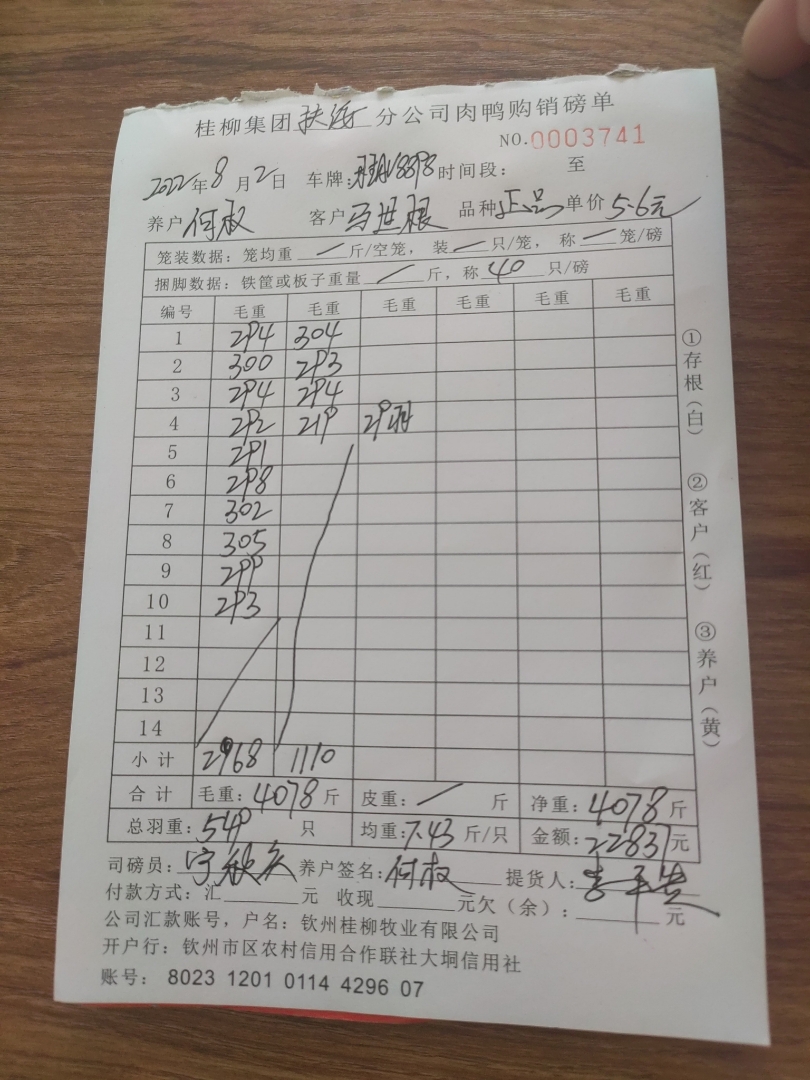 桂柳集团 分公司肉鸭购销磅单
NO.0003741
2022年8月2日 车牌: 时间段: 至
养户 何叔 客户 马世根 品种 正品 单价 5.6元
笼装数据: 笼均重 / 斤/空笼, 装 / 只/笼, 称 / 笼/磅
捆脚数据: 铁筐或板子重量 / 斤, 称 40 只/磅
编号 毛重 毛重 毛重 毛重 毛重 毛重
1 294 304
2 300 293
3 294 294
4 292 219 29只
5 291
6 298
7 302
8 305
9 299
10 293
11
12
13
14
小计 2968 1110
合计 毛重: 4078 斤 皮重: / 斤 净重: 4078 斤
总羽重: 549 只 均重: 7.43 斤/只 金额: 22837 元
司磅员: 养户签名: 何叔 提货人:
付款方式: 汇 元 收现 元欠(余): 元
公司汇款账号, 户名: 钦州桂柳牧业有限公司
开户行: 钦州市区农村信用合作联社大垌信用社
账号: 8023 1201 0114 4296 07
①存根(白)
②客户(红)
③养户(黄)